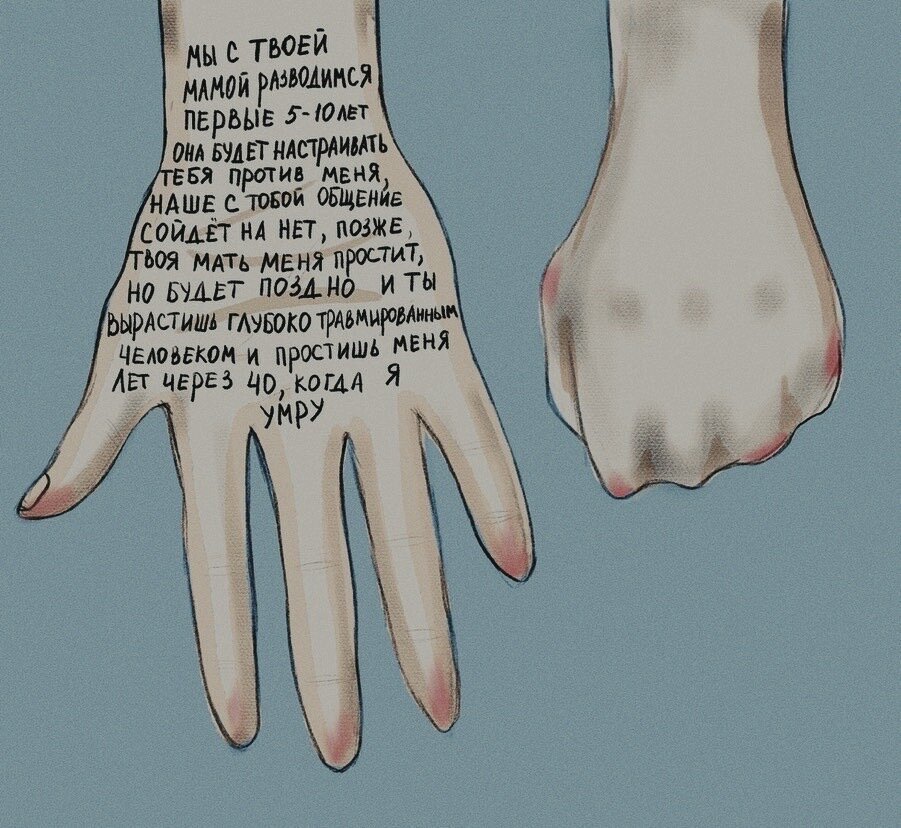 МЫ С ТВОЕЙ
МАМОЙ РАЗВОДИМСЯ
ПЕРВЫЕ 5-10 ЛЕТ
ОНА БУДЕТ НАСТРАИВАТЬ
ТЕБЯ ПРОТИВ МЕНЯ,
НАШЕ С ТОБОЙ ОБЩЕНИЕ
СОЙДЁТ НА НЕТ, ПОЗЖЕ,
ТВОЯ МАТЬ МЕНЯ ПРОСТИТ,
НО БУДЕТ ПОЗДНО И ТЫ
ВЫРАСТИШЬ ГЛУБОКО ТРАВМИРОВАННЫМ
ЧЕЛОВЕКОМ И ПРОСТИШЬ МЕНЯ
ЛЕТ ЧЕРЕЗ 40, КОГДА Я
УМРУ